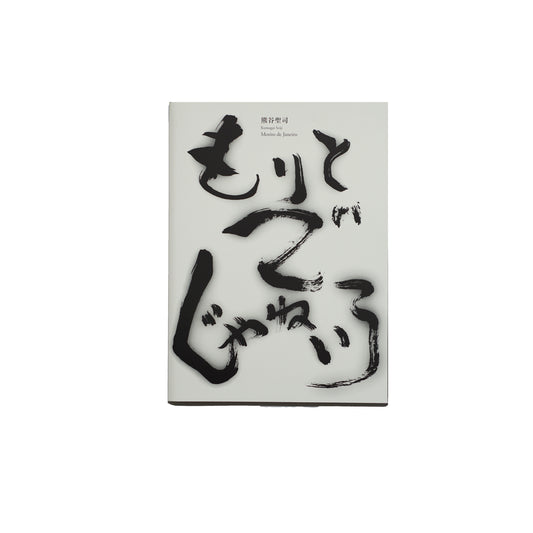 熊谷聖司
Kumagai Seiji
Morino de Janeiro
もりと
で
じゃねいろ